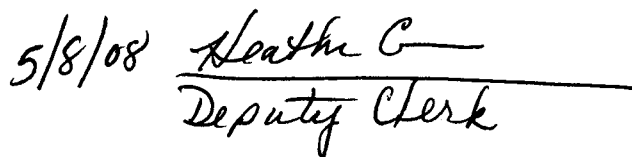 5/8/08 Heather C
Deputy Clerk